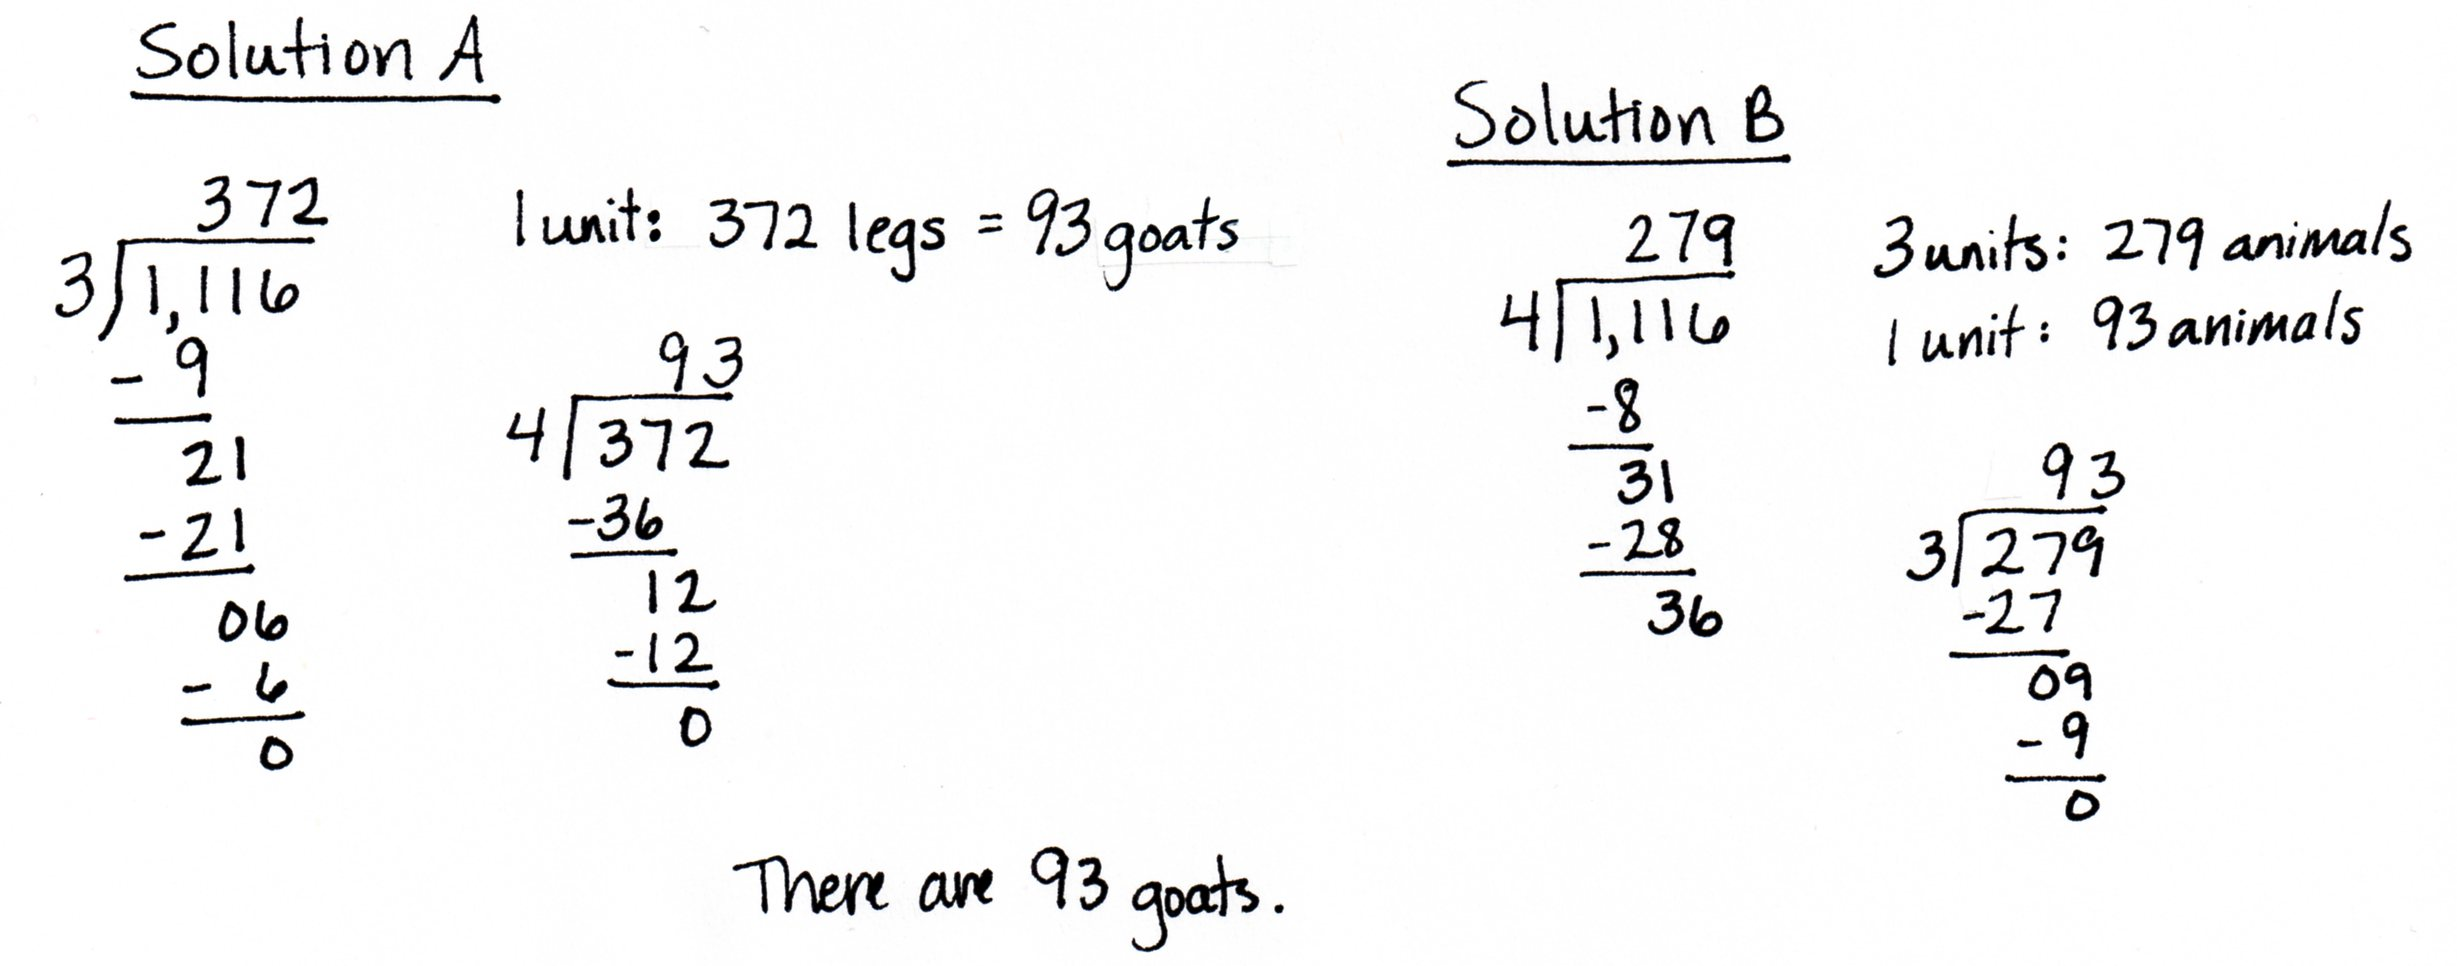 Solution A
372
3 1,116
- 9
21
- 21
06
- 6
0
1 unit: 372 legs = 93 goats
93
4 372
-36
12
-12
0
Solution B
279
4 1,116
-8
31
-28
36
3 units: 279 animals
1 unit: 93 animals
93
3 279
-27
09
- 9
0
There are 93 goats.